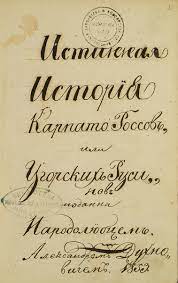 Истинная
Исторія
Карпато Россовъ,
или
Угорскихъ Руси,,
новѣ
изданна
Народолюбцемъ.
Александромъ Духно-
вичемъ. 1853